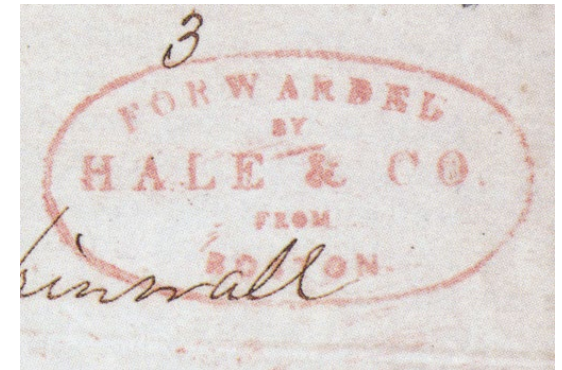 3
FORWARDED
BY
HALE & CO.
FROM
BOSTON.